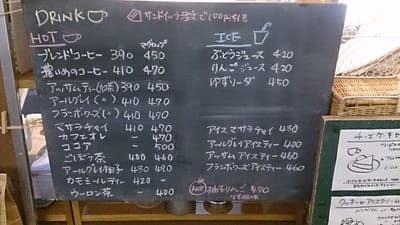 DRINK サンドイッチ注文で100円引き
HOT
マグカップ
ブレンドコーヒー 390 450
濃いめのコーヒー 410 470
アッサムティー(紅茶) 390 450
アールグレイ(〃) 410 470
フランボワーズ(〃) 410 470
マサラチャイ 410 470
カフェオレ 410 470
ココア - 500
ごぼう茶 400 460
アールグレイ柚子 430 490
カモミールティー 420 -
ウーロン茶 - 400
ICE
ぶどうジュース 420
りんごジュース 420
ゆずソーダ 450
アイスマサラチャイ 430
アールグレイアイスティー 400
アッサムアイスティー 460
フランボワーズアイスティー 460
HOT りんご 470
チーズケーキセ